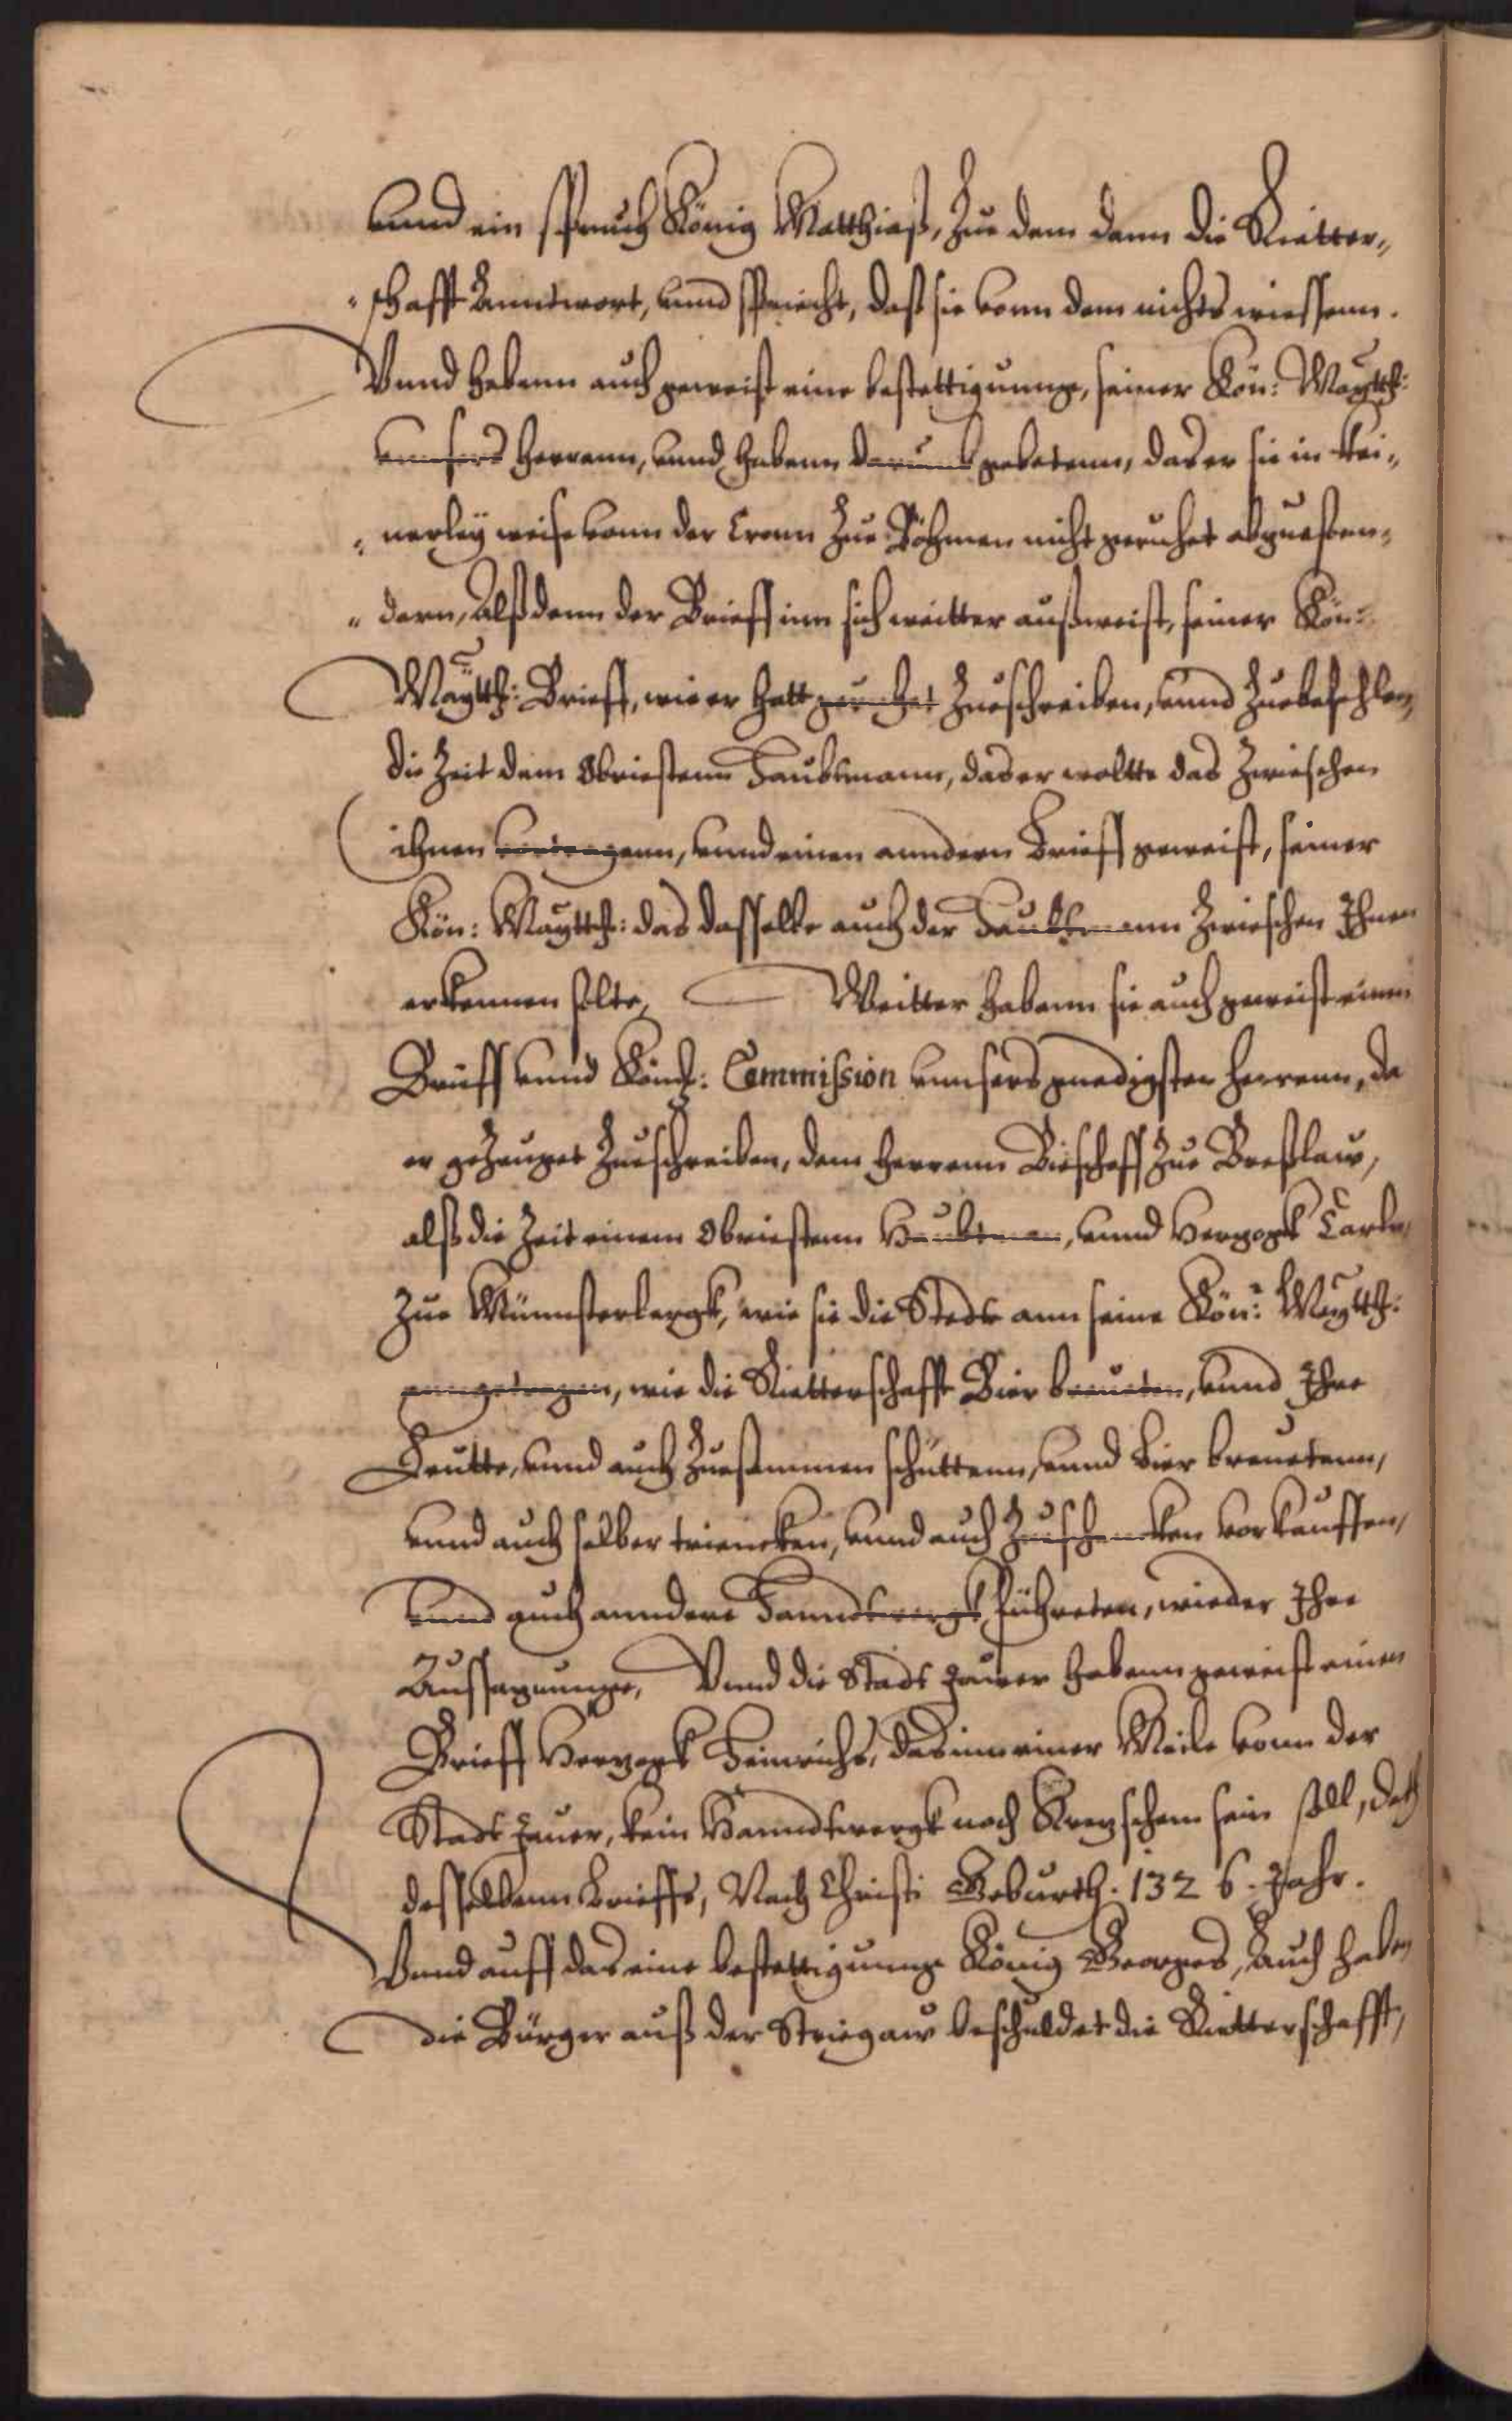 vnnd ein spruch König Matthiaß, Zue dem dann die Ritter„
„schafft Anntwort, vnnd spricht, daß sie vonn dem nichts wiessenn.
Vnnd habenn auch geweist eine bestettigunnge, seiner Kön: Maytth:
vnnsers Herrenn, vnnd habenn darumb gebetenn, das er sie in kei„
„nerley weise vonn der Cronn Zue Böhmen nicht geruhet abzuesten„
„dern, Alß dann der Brieff inn sich weitter außweist, seiner Kön:
Maytth: Brieff, wie er hatt geruhet Zueschreiben, vnnd Zuebefehlen,
die Zeit dem Obriestenn Haubtmann, das er woltte das Zwieschen
ihnen vortragenn, vnnd einen anndern Brieff geweist, seiner
Kön: Maytth: das dasselbe auch der Haubtmann Zwieschen Ihnen
erkennen solte, Weitter habenn sie auch geweist einen
Brieff vnnd König: Commission vnnsers gnedigsten Herrenn, da
er geZeuget Zueschreiben, dem Herrenn Bieschoff Zue Breßlaw,
alß die Zeit einem Obriestenn Haubtman, vnnd Herzogk Carln
Zue Münnsterbergk, wie sie die Stedte ann seine Kön: Maytth:
anngetragen, wie die Ritterschafft Bier breueten, vnnd Ihre
Leutte, vnnd auch Zuesammen schüttenn, vnnd Bier breuetenn,
vnnd auch selber triencken, vnnd auch Zueschencken vorkauffen,
vnnd auch anndere Hanndtwergk führeten, wieder Ihre
Aussagunnge, Vnnd die Stadt Jauer habenn geweist einen
Brieff Herzogk Heinrichs, das inn einer Meile vonn der
Stadt Jauer, kein Hanndtwergk noch Kretzschem sein soll, dat
desselbenn Brieffs, Nach Christi Geburth. 1326. Jahr.
Vnnd auff das eine bestettigunnge König Georges, Auch haben
die Bürger auß der Striegaw beschuldet die Ritterschafft,